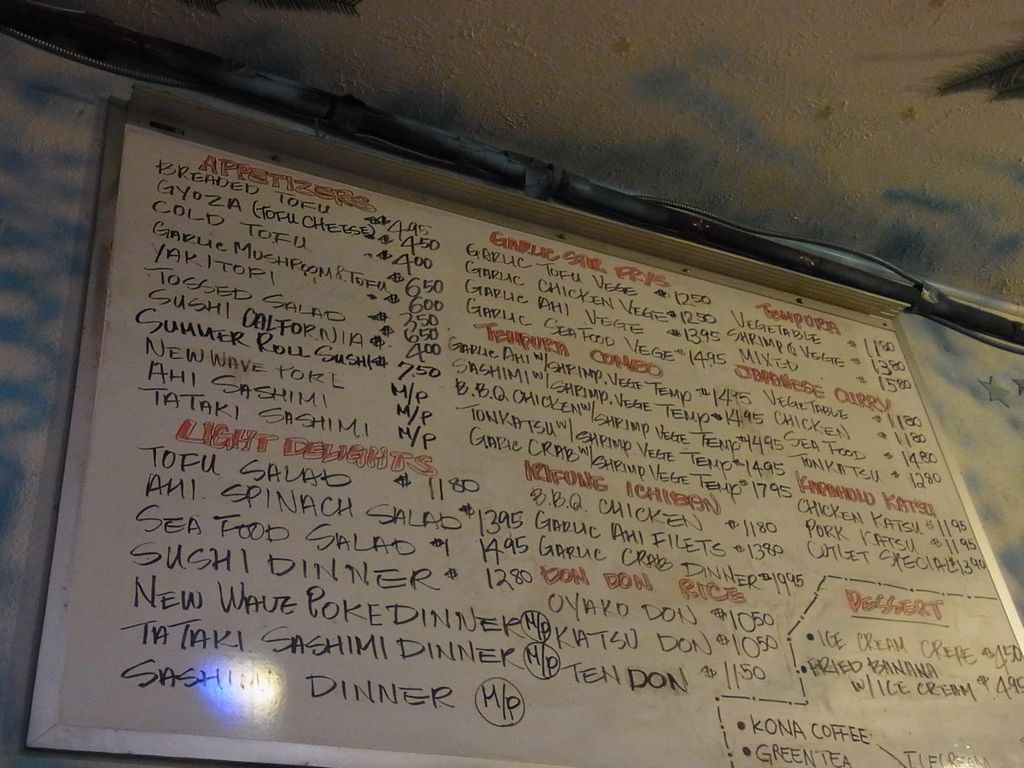 APPETIZERS
BREADED TOFU $4.95
GYOZA (TOFU CHEESE) $4.50
COLD TOFU $4.00
GARLIC MUSHROOM & TOFU $6.50
YAKITORI $6.00
TOSSED SALAD $3.50
SUSHI CALFORNIA $6.50
SUMMER ROLL SUSHI $4.00
NEW WAVE POKE 7.50
AHI SASHIMI M/P
TATAKI SASHIMI M/P
M/P
LIGHT DELIGHTS
TOFU SALAD $11.80
AHI SPINACH SALAD $13.95
SEA FOOD SALAD $14.95
SUSHI DINNER $12.80
NEW WAVE POKE DINNER M/P
TATAKI SASHIMI DINNER M/P
SASHIMI DINNER M/P
GARLIC STIR FRYS
GARLIC TOFU VEGE $12.50
GARLIC CHICKEN VEGE $12.50
GARLIC AHI VEGE $13.95
GARLIC SEAFOOD VEGE $14.95
TEMPURA COMBO
GARLIC AHI W/ SHRIMP, VEGE TEMP $14.95
SASHIMI W/ SHRIMP, VEGE TEMP $14.95
B.B.Q. CHICKEN W/ SHRIMP VEGE TEMP $14.95
TONKATSU W/ SHRIMP VEGE TEMP $14.95
GARLIC CRAB W/ SHRIMP VEGE TEMP $17.95
ICHIBAN
B.B.Q. CHICKEN $11.80
GARLIC AHI FILETS $13.80
GARLIC CRAB DINNER $19.95
DON DON RICE
OYAKO DON $10.50
KATSU DON $10.50
TEN DON $11.50
TEMPURA
VEGETABLE $11.80
SHRIMP & VEGTE $13.80
MIXED $15.80
JAPANESE CURRY
VEGETABLE $11.80
CHICKEN $11.80
SEA FOOD $14.80
TONKATSU $12.80
KATSU
CHICKEN KATSU $11.95
PORK KATSU $11.95
CUTLET SPECIAL $13.90
DESSERT
• ICE CREAM CREPE $4.50
• FRIED BANANA
W/ ICE CREAM $4.95
• KONA COFFEE
• GREEN TEA
ICE CREAM